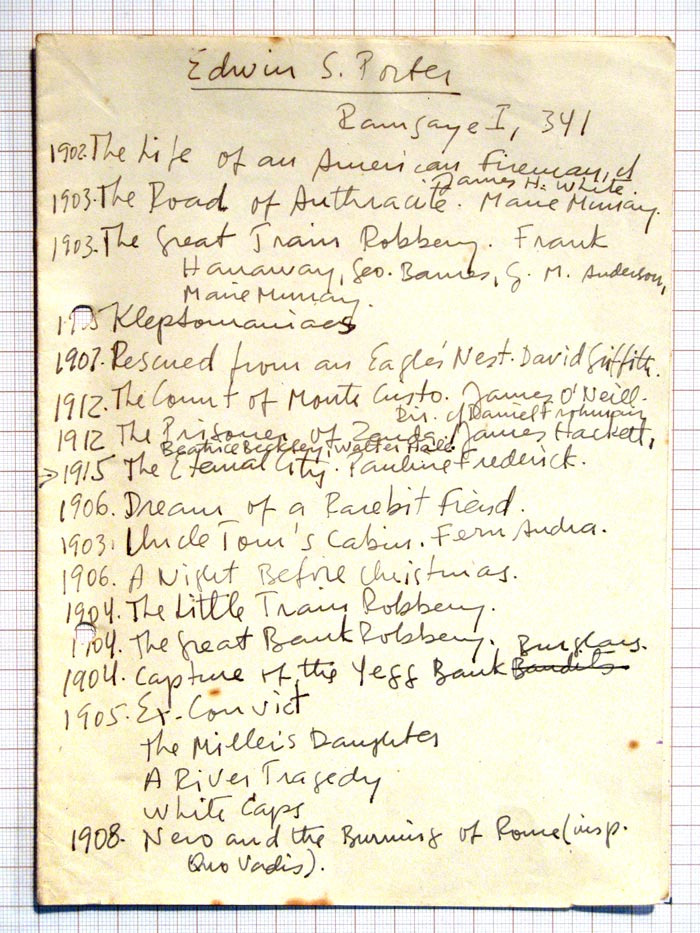 Edwin S. Porter
Ramsaye I, 341
1902. The Life of an American Fireman, d
James H. White.
1903. The Road of Anthracite. Marie Murray.
1903. The Great Train Robbery. Frank
Hanaway, Geo. Barnes, G. M. Anderson,
Marie Murray.
1905 Kleptomaniacs
1907. Rescued from an Eagle's Nest. David Griffith.
1912. The Count of Monte Cristo. James O'Neill.
Dir. d Daniel Frohman
1912 The Prisoner of Zenda. James Hackett,
Beatrice Beckley, Walter Hall.
> 1915 The Eternal City. Pauline Frederick.
1906. Dream of a Rarebit Fiend.
1903. Uncle Tom's Cabin. Fern Andra.
1906. A Night Before Christmas.
1904. The Little Train Robbery.
1904. The Great Bank Robbery.
Burglars.
1904. Capture of the Yegg Bank Bandits
1905. Ex-Convict
The Miller's Daughter
A River Tragedy
White Caps
1908. Nero and the Burning of Rome (insp.
Quo Vadis).